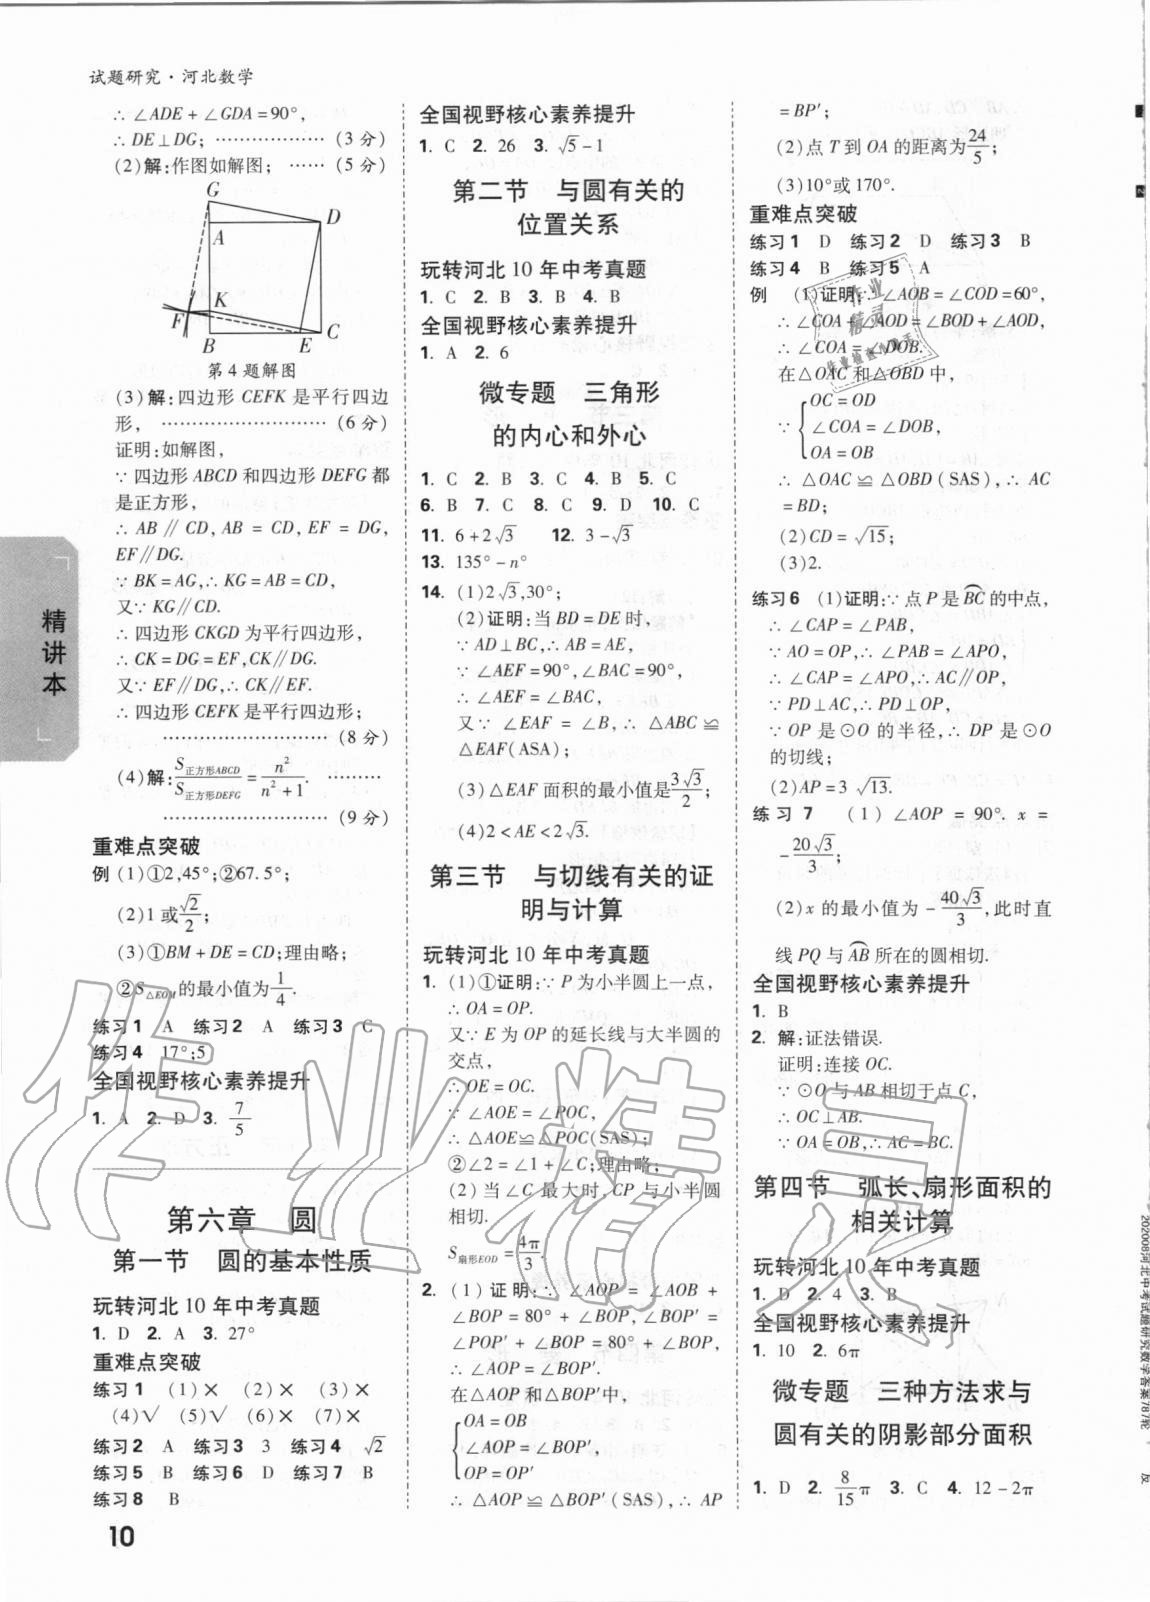 试题研究·河北数学
∴ ∠ADE + ∠GDA = 90°,
∴ DE⊥DG; ⋯⋯⋯⋯⋯⋯ (3 分)
(2)解:作图如解图; ⋯⋯ (5 分)
G
D
A
K
F
B
E
C
第 4 题解图
(3)解:四边形 CEFK 是平行四边
形, ⋯⋯⋯⋯⋯⋯⋯⋯⋯ (6 分)
证明:如解图,
∵ 四边形 ABCD 和四边形 DEFG 都
是正方形,
∴ AB∥CD, AB = CD, EF = DG,
EF∥DG.
∵ BK = AG,∴ KG = AB = CD,
又∵ KG∥CD.
∴ 四边形 CKGD 为平行四边形,
∴ CK = DG = EF,CK∥DG.
又∵ EF∥DG,∴ CK∥EF.
∴ 四边形 CEFK 是平行四边形;
⋯⋯⋯⋯⋯⋯⋯⋯⋯⋯ (8 分)
(4)解:S正方形ABCD/S正方形DEFG = n²/(n²+1). ⋯⋯⋯
⋯⋯⋯⋯⋯⋯⋯⋯⋯⋯ (9 分)
重难点突破
例 (1)①2,45°;②67.5°;
(2)1 或√2/2;
(3)①BM + DE = CD;理由略;
②S△EOM的最小值为1/4.
练习1 A 练习2 A 练习3 C
练习4 17°;5
全国视野核心素养提升
1. A 2. D 3. 7/5
第六章 圆
第一节 圆的基本性质
玩转河北 10 年中考真题
1. D 2. A 3. 27°
重难点突破
练习1 (1)× (2)× (3)×
(4)√ (5)√ (6)× (7)×
练习2 A 练习3 3 练习4 √2
练习5 B 练习6 D 练习7 B
练习8 B
10
精讲本
全国视野核心素养提升
1. C 2. 26 3. √5 - 1
第二节 与圆有关的
位置关系
玩转河北 10 年中考真题
1. C 2. B 3. B 4. B
全国视野核心素养提升
1. A 2. 6
微专题 三角形
的内心和外心
1. C 2. B 3. C 4. B 5. C
6. B 7. C 8. C 9. D 10. C
11. 6 + 2√3 12. 3 - √3
13. 135° - n°
14. (1)2√3,30°;
(2)证明:当 BD = DE 时,
∵ AD⊥BC,∴ AB = AE,
∵ ∠AEF = 90°,∠BAC = 90°,
∴ ∠AEF = ∠BAC,
又∵ ∠EAF = ∠B,∴ △ABC ≌
△EAF(ASA);
(3)△EAF 面积的最小值是3√3/2;
(4)2 < AE < 2√3.
第三节 与切线有关的证
明与计算
玩转河北 10 年中考真题
1. (1)①证明:∵ P 为小半圆上一点,
∴ OA = OP.
又∵ E 为 OP 的延长线与大半圆的
交点,
∴ OE = OC.
∵ ∠AOE = ∠POC,
∴ △AOE≌△POC(SAS);
②∠2 = ∠1 + ∠C;理由略;
(2) 当∠C 最大时, CP 与小半圆
相切.
S扇形EOD = 4π/3.
2. (1) 证明:∵ ∠AOP = ∠AOB +
∠BOP = 80° + ∠BOP, ∠BOP′ =
∠POP′ + ∠BOP = 80° + ∠BOP,
∴ ∠AOP = ∠BOP′.
在△AOP 和△BOP′中,
OA = OB
∠AOP = ∠BOP′,
OP = OP′
∴ △AOP ≌ △BOP′(SAS),∴ AP
= BP′;
(2)点 T 到 OA 的距离为24/5;
(3)10°或 170°.
重难点突破
练习1 D 练习2 D 练习3 B
练习4 B 练习5 A
例 (1)证明:∵ ∠AOB = ∠COD = 60°,
∴ ∠COA + ∠AOD = ∠BOD + ∠AOD,
∴ ∠COA = ∠DOB.
在△OAC 和△OBD 中,
∵ OC = OD
∠COA = ∠DOB,
OA = OB
∴ △OAC ≌ △OBD(SAS),∴ AC
= BD;
(2)CD = √15;
(3)2.
练习6 (1)证明:∵ 点 P 是B͡C的中点,
∴ ∠CAP = ∠PAB,
∵ AO = OP,∴ ∠PAB = ∠APO,
∴ ∠CAP = ∠APO,∴ AC∥OP,
∵ PD⊥AC,∴ PD⊥OP,
∵ OP 是⊙O 的半径,∴ DP 是⊙O
的切线;
(2)AP = 3 √13.
练习 7 (1) ∠AOP = 90°. x =
-20√3/3;
(2)x 的最小值为 -40√3/3,此时直
线 PQ 与A͡B所在的圆相切.
全国视野核心素养提升
1. B
2. 解:证法错误.
证明:连接 OC.
∵ ⊙O 与 AB 相切于点 C,
∴ OC⊥AB.
∵ OA = OB,∴ AC = BC.
第四节 弧长、扇形面积的
相关计算
玩转河北 10 年中考真题
1. D 2. 4 3. B
全国视野核心素养提升
1. 10 2. 6π
微专题 三种方法求与
圆有关的阴影部分面积
1. D 2. 8/15π 3. C 4. 12 - 2π
202008河北中考试题研究数学答案787轮 反
作业精灵
作业
精灵